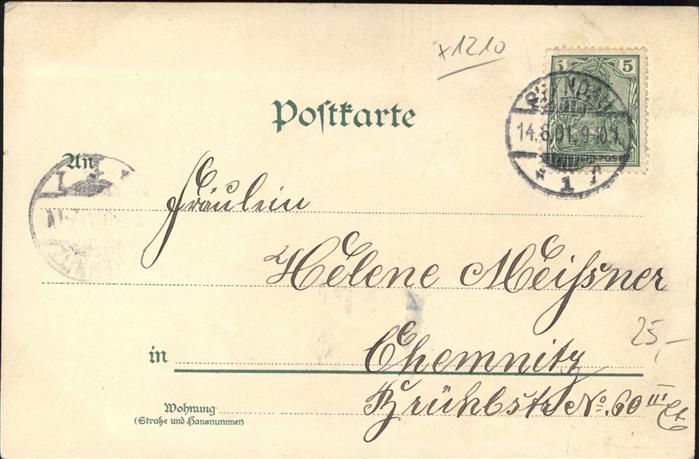 x1210
5 5
Postkarte
14.8.01. 9-10.V.
1
An
Fräulein
Helene Meißner
25,-
in Chemnitz
Wohnung Brühlstr. No. 60 III
(Straße und Hausnummer)